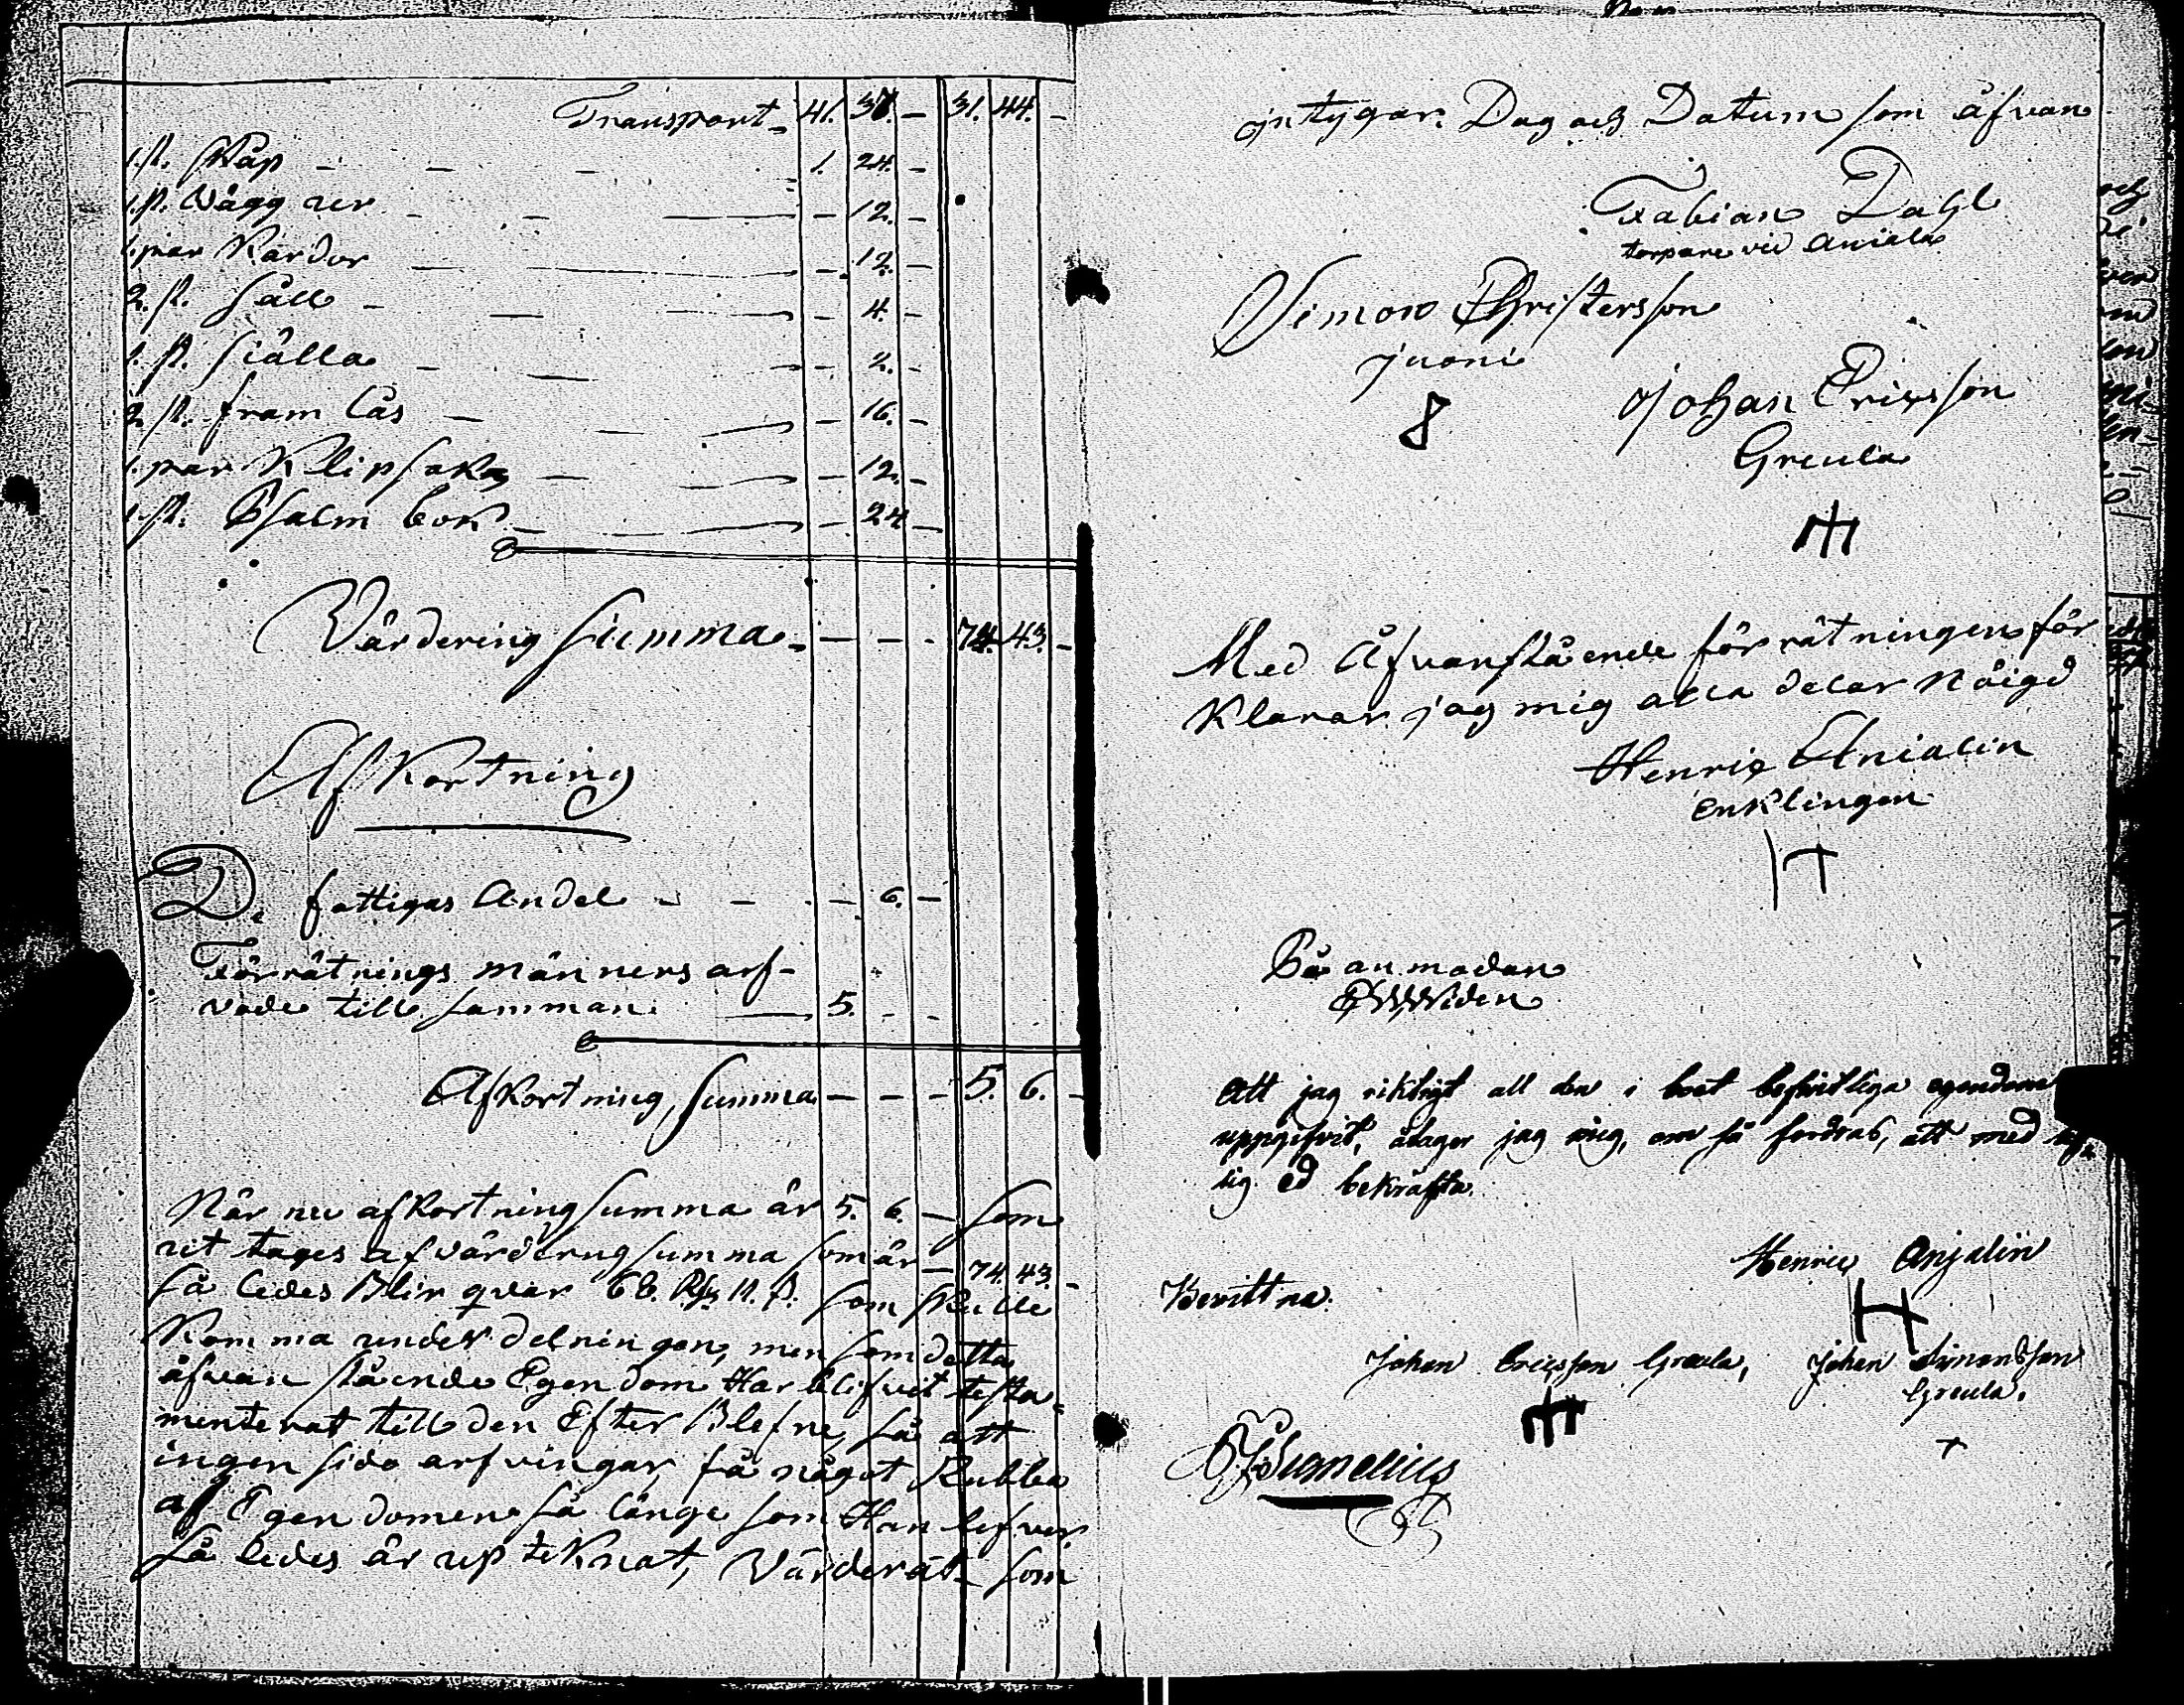 Transport 41. 37. — 31. 44. —
1. st. Skåp — 1. 24. —
1. st. Vägg uer — 12. —
1. par Kardor — 12. —
2. st. Såll — 4. —
1. st. siälla — 2. —
2. st. fram lås — 16. —
1. par Klipsaxs — 12. —
1. st. Psalm bok — 24 —
Värdering Summa — — — 74. 43. —
Af Kortning
De fattigas Andel — — 6. —
Förrätnings männers arf-
vode till samman. — 5. — —
Afkortning Summa — — — 5. 6. —
När nu afkortning summa är 5. 6. — som
ut tages af värderng summa som är — 74. 43. —
så ledes Blir qvar 68. Rs 11. st. som skulle
Komma under delningen, men som detta
åfvan stående Egendom Har blifvit testa-
menterat till den Efter Blefne, så att
ingen sido arfvingar, få något Rubba
af Egendomen så länge som Han lefver
så ledes är up teknat, Värderat som
intygar. Dag och Datum som åfvan
Fabian Dahl
torpare vid Aniala
Simon Christersson
juoni
Johan Ericsson
Greula
Med Åfvanstående förrätningen för
Klarar jag mig alla delar Nöigd
Henric Anialin
Enklingen
H
På anmodan
Widen
Att jag riktigt all den i boet befintliga egendom
uppgifvit, åtager jag mig, om så fordras, att med
lig ed bekräfta.
Henric Anjalin
H
Bevittna:
Johan Ericsson Greula, Johan Simonsson
Greula.
+
Sumelius